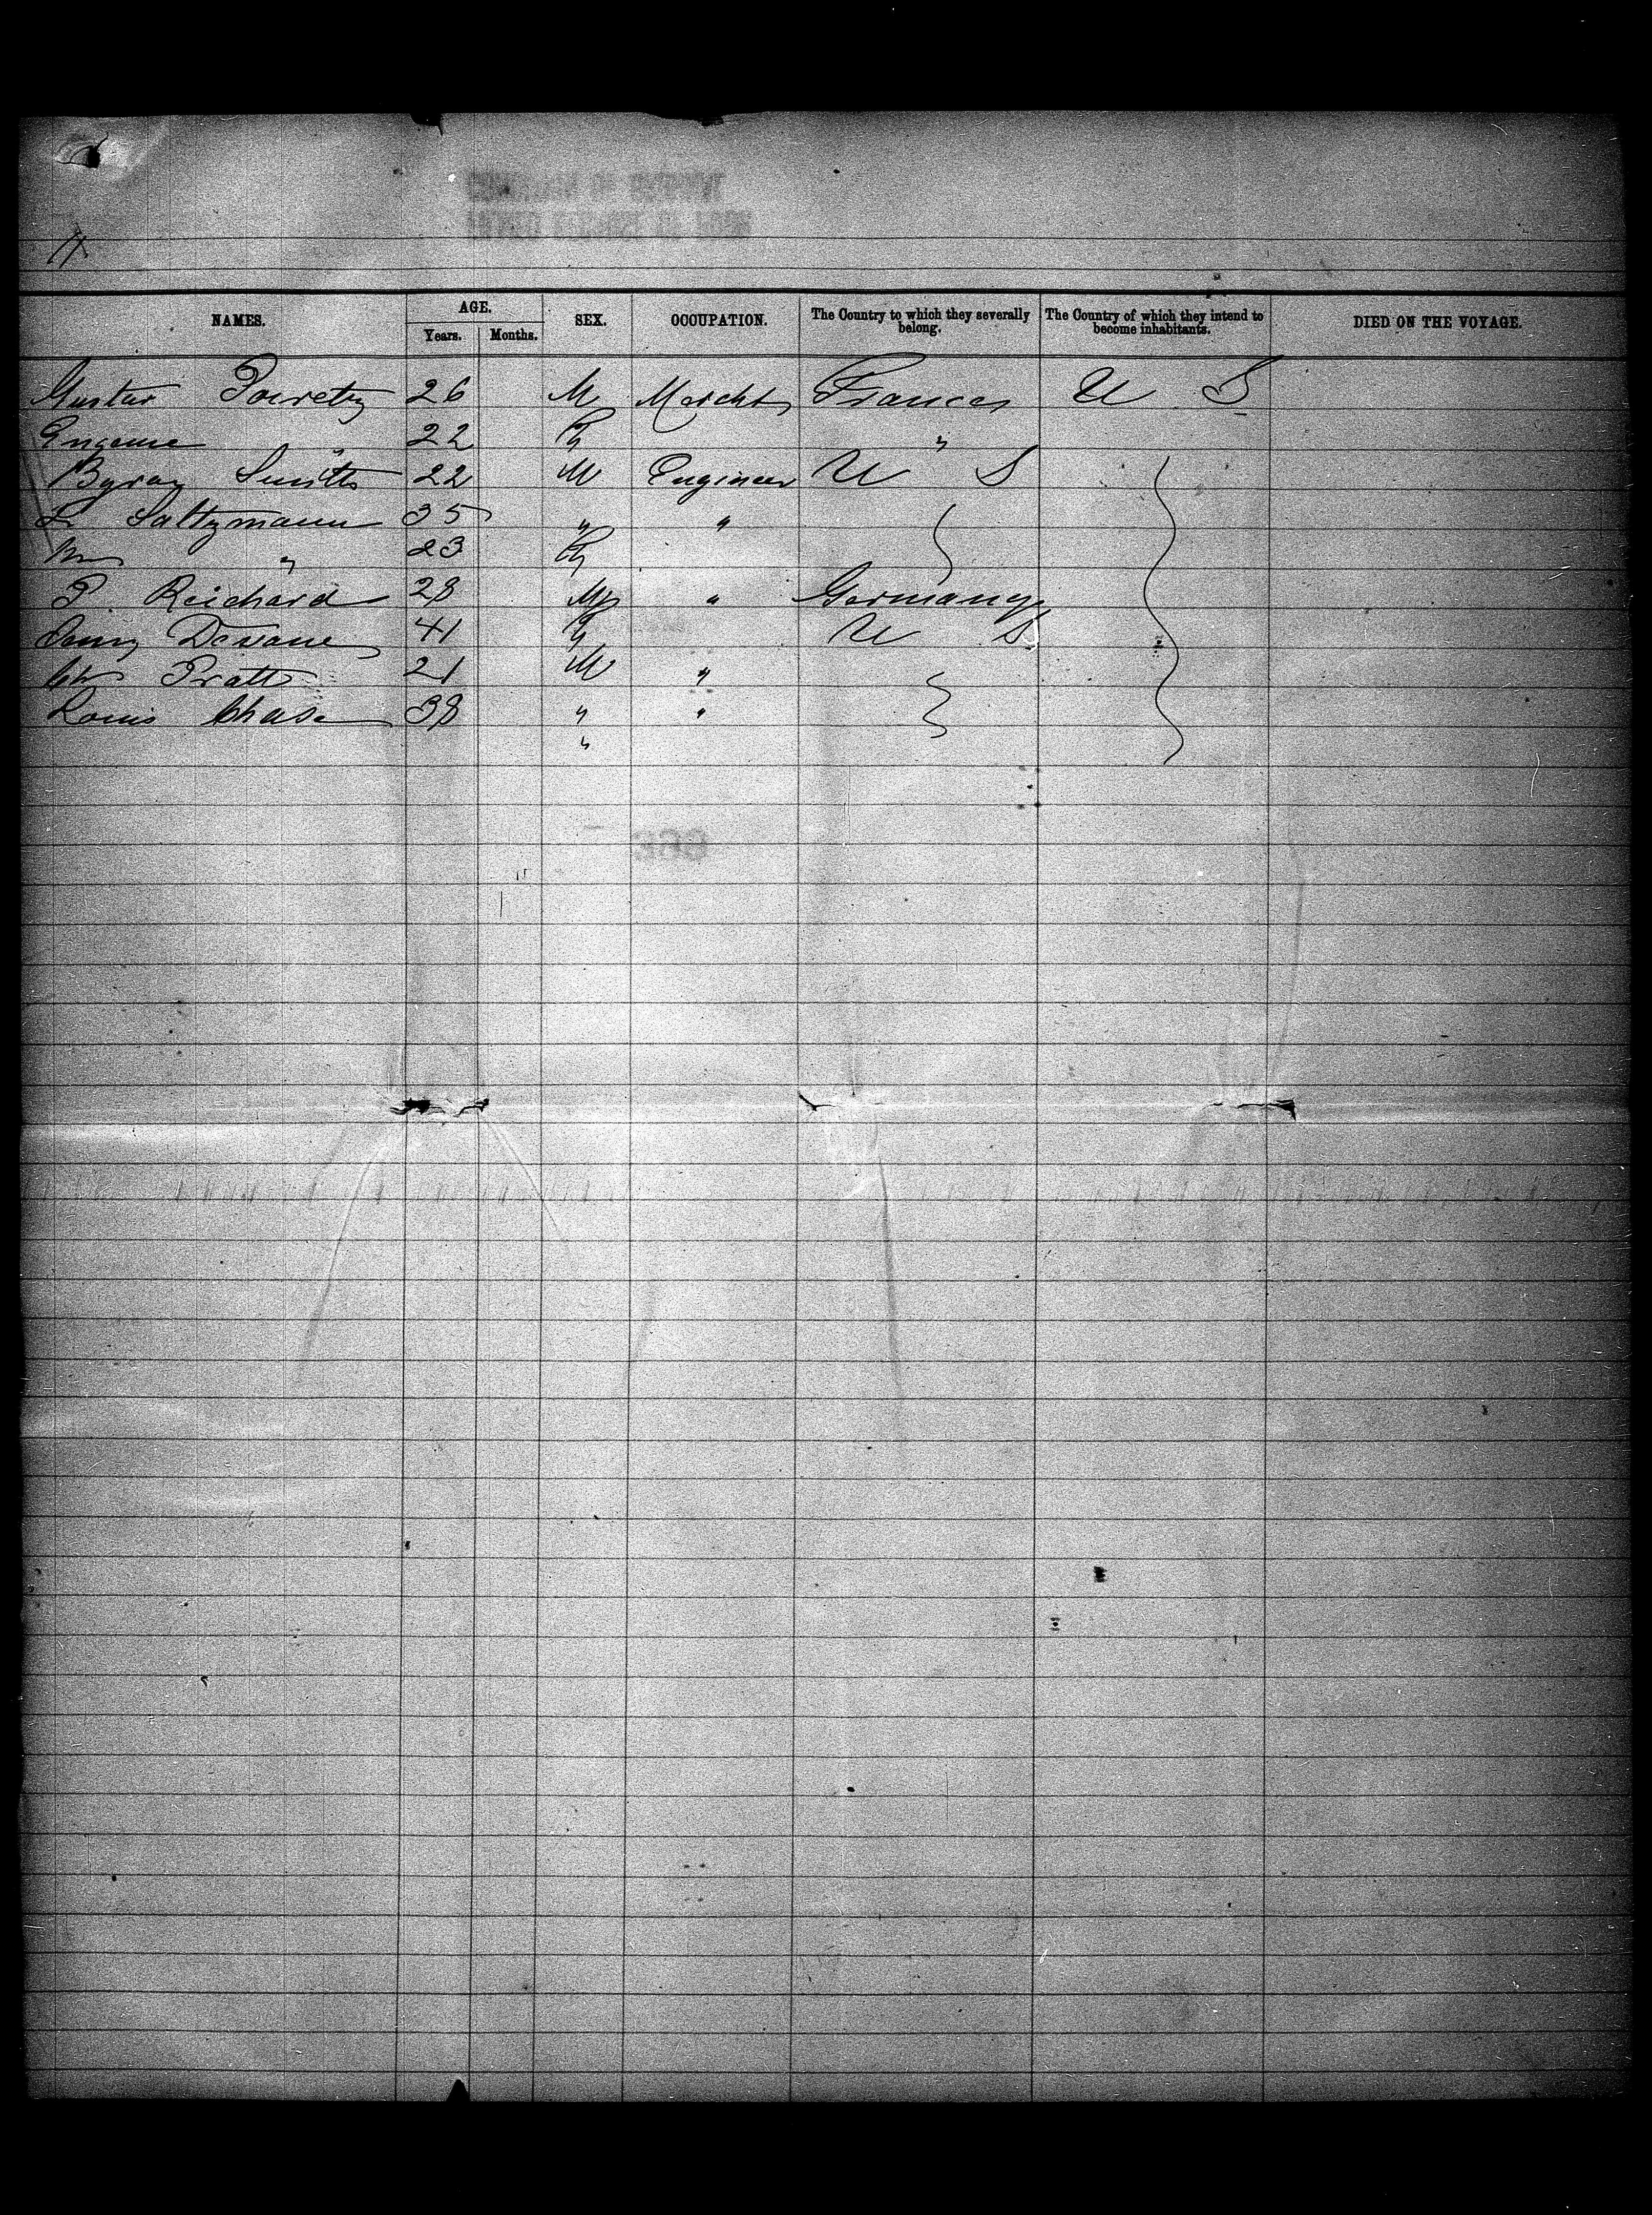 NAMES. AGE. SEX. OCCUPATION. The Country to which they severally belong. The Country of which they intend to become inhabitants. DIED ON THE VOYAGE.
Years. Months.
Gustav 26 M Mercht France U S
22 "
Byron Smith 22 M Engineer U S
L Saltzmann 35 " "
" 23
P. Reichard 28 M " Germany
Devane 41 U S
Chs Pratt 21 M "
Louis Chase 38 " "
"